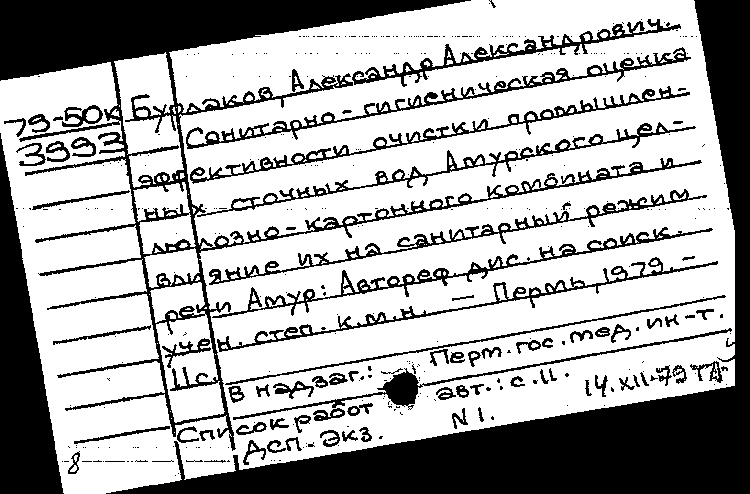 79-50к Бурлаков, Александр Александрович.
3993 Санитарно-гигиеническая оценка
эффективности очистки промышлен-
ных сточных вод Амурского цел-
люлозно-картонного комбината и
влияние их на санитарный режим
реки Амур: Автореф. дис. на соиск.
учен. степ. к.м.н. — Пермь, 1979. -
11 с.
В надзаг.: Перм. гос. мед. ин-т.
Список работ авт.: с. 11.
ДСП-экз. N 1. 14.XII-79
8